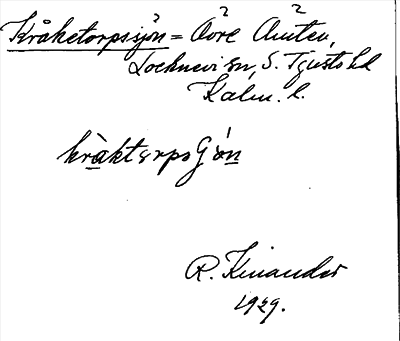 Kråketorpssjön = Övre Emten,
Locknevi sn, S. Tjusts hd
Kalm. l.
kråktɛrpsʃön
R. Kinander
1929.